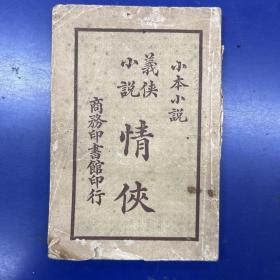 小本小説
義俠小説
情俠
商務印書館印行